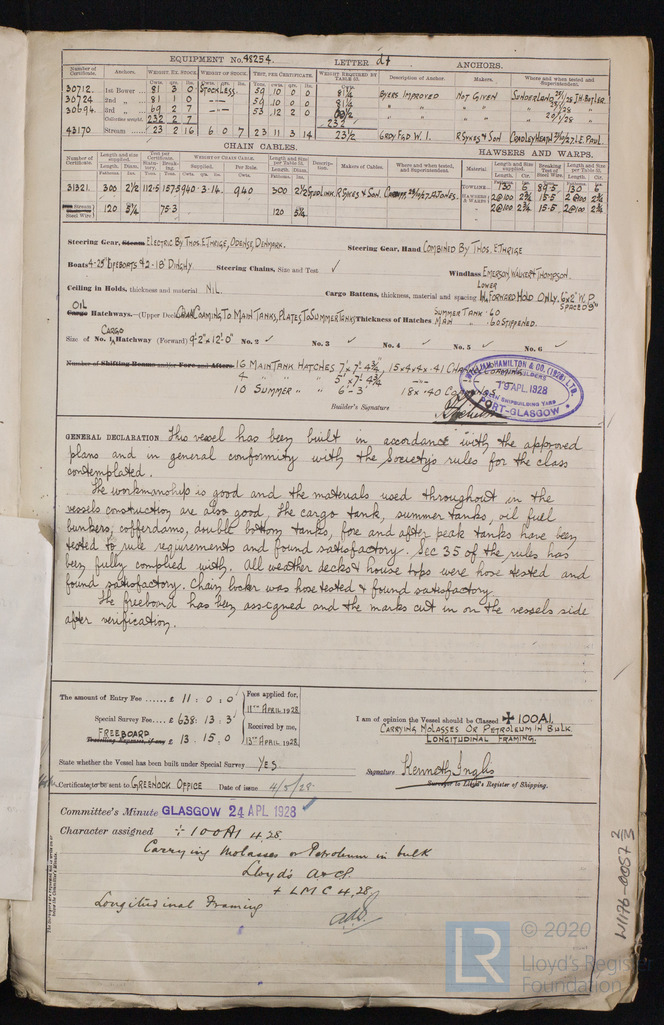 EQUIPMENT No. 48254. LETTER d† ANCHORS.
Number of Certificate. Anchors. WEIGHT EX. STOCK WEIGHT OF STOCK. TEST, PER CERTIFICATE. WEIGHT REQUIRED BY TABLE 31. Description of Anchor. Makers. Where and when tested and Superintendent.
30712. 1st Bower 81 3 0 STOCKLESS. 59 10 0 0 81¼ BYERS IMPROVED NOT GIVEN SUNDERLAND /28 J.H. BUTLER.
30724 2nd „ 81 1 0 59 10 0 0 81¼ „ „ „ /28
30694. 3rd „ 69 2 7 53 12 2 0 „ „ „ 20/1/28
Collective weight 232 2 7 232
43170 Stream 23 2 16 6 0 7 23 11 3 14 23½ R SYKES & SON CRADLEY HEATH /27 L.E. PAUL
CHAIN CABLES. HAWSERS AND WARPS.
Number of Certificate. Length and size supplied. Test per Certificate. WEIGHT OF CHAIN CABLE. Length and size per Table 31. Description. Makers of Cables. Where and when tested, and Superintendent. Material Length and size supplied. Breaking Test of Steel Wire. Length and size per Table 31.
31321. 300 2½ 112·5 157·5 940·3·14. 940 300 2½ STUD LINK. R SYKES & SON. TOWLINE 130 6 89·5 130 6
HAWSERS & WARPS 2@100 2¾ 15·5 2@100 2¾
Stream Steel Wire 120 5¼ 75·3 120 5¼ „ 2@100 2¾ 15·5 2@100 2¾
Steering Gear, Steam ELECTRIC BY THOS. ETHRIGE, ODENSE, DENMARK. Steering Gear, Hand COMBINED BY THOS. ETHRIGE
Boats 4-25' LIFEBOATS & 2-18' DINGHY Steering Chains, Size and Test ✓ Windlass EMERSON, WALKER & THOMPSON.
Ceiling in Holds, thickness and material NIL. Cargo Battens, thickness, material and spacing LOWER FORWARD HOLD ONLY. 6"x2" W.P. SPACED 9"
OIL
Cargo Hatchways.—(Upper Deck) COAMING TO MAIN TANKS, PLATES TO SUMMER TANKS Thickness of Hatches SUMMER TANK ·60
MAIN „ ·60 STIFFENED.
CARGO
Size of No. 1 Hatchway (Forward) 9'-2" x 12'-0" No. 2 ✓ No. 3 ✓ No. 4 ✓ No. 5 ✓ No. 6 ✓
Number of Shifting Beams and/or Fore and Afters 16 MAIN TANK HATCHES 7' x 7'-4¾", 15 x 4 x ·41
4 „ „ „ 5' x 7'-4¾
10 SUMMER „ „ 6'-3" 18 x ·40 COAMINGS
WILLIAM HAMILTON & CO. (1928) LTD.
SHIPBUILDERS
19 APL 1928
GLEN SHIPBUILDING YARD
PORT-GLASGOW
Builder's Signature
GENERAL DECLARATION This vessel has been built in accordance with the approved
plans and in general conformity with the Society's rules for the class
contemplated.
The workmanship is good and the materials used throughout in the
vessels construction are also good, The cargo tank, summer tanks, oil fuel
bunkers, cofferdams, double bottom tanks, fore and after peak tanks have been
tested to rule requirements and found satisfactory. Sec 35 of the rules has
been fully complied with. All weather decks & house tops were hose tested and
found satisfactory. Chain locker was hose tested & found satisfactory
The freeboard has been assigned and the marks cut in on the vessels side
after verification.
The amount of Entry Fee ...... £ 11 : 0 : 0 Fees applied for,
11TH APRIL 1928
Special Survey Fee .... £ 638 : 13 : 3 Received by me,
FREEBOARD
Travelling Expenses, if any £ 13 : 15 : 0 13TH APRIL 1928
I am of opinion the Vessel should be Classed ✠ 100A1.
CARRYING MOLASSES OR PETROLEUM IN BULK.
LONGITUDINAL FRAMING.
State whether the Vessel has been built under Special Survey YES
Signature Kenneth Inglis
Surveyor to Lloyd's Register of Shipping.
Certificate to be sent to GREENOCK OFFICE Date of issue 4/5/28
Committee's Minute GLASGOW 24 APL 1928
Character assigned + 100A1 4,28
Carrying Molasses or Petroleum in bulk
Lloyd's A & CP
+ LMC 4,28
Longitudinal Framing
W1176-0057 2/3
LR
© 2020
Lloyd's Register
Foundation